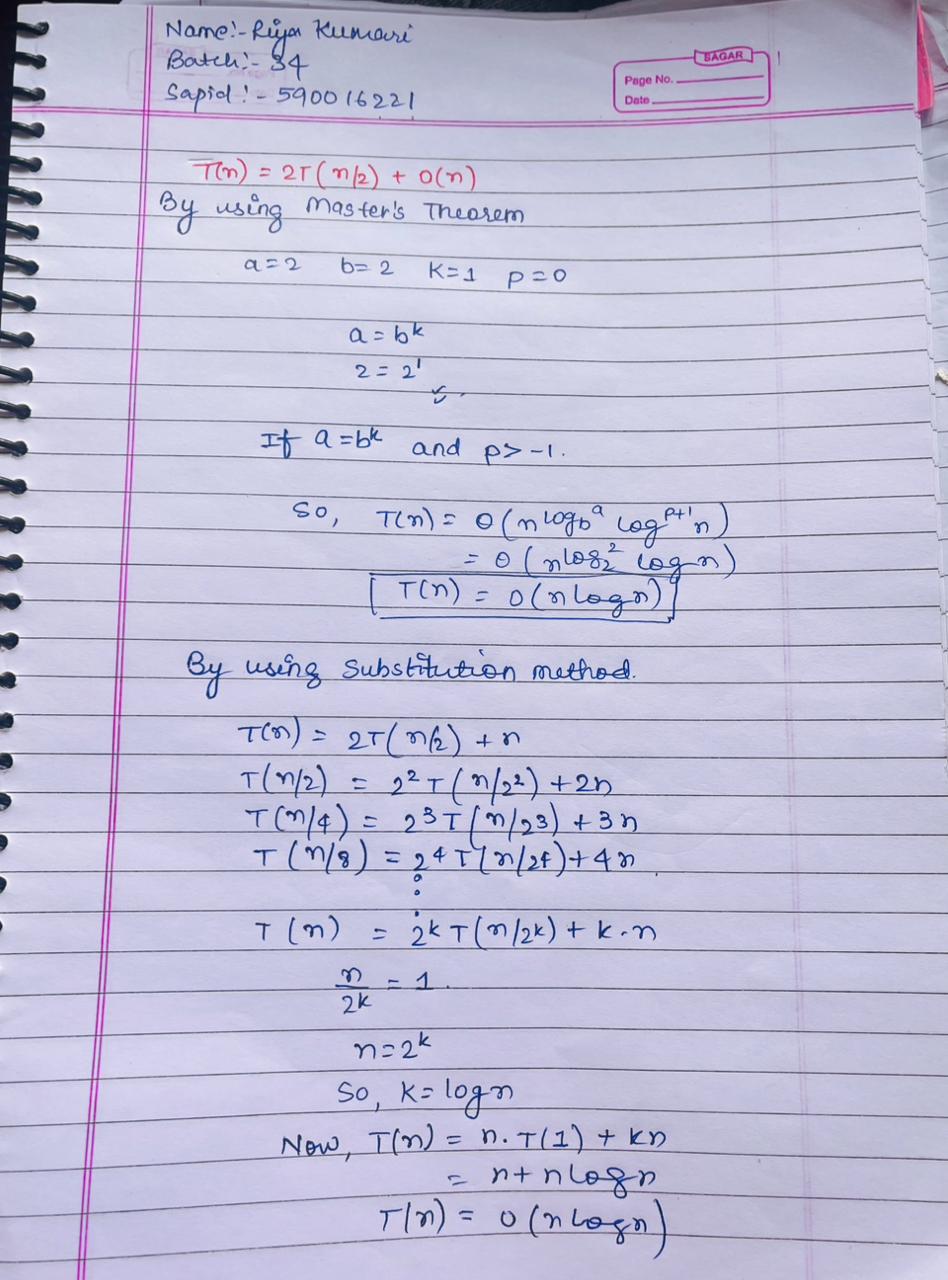 Name:- Riya Kumari
Batch:- 34
Sapid:- 590016221
SAGAR
Page No.
Date
T(n) = 2T(n/2) + O(n)
By using Master's Theorem
a=2 b=2 K=1 p=0
a = b^k
2 = 2^1
If a = b^k and p > -1.
So, T(n) = O(n^log_b^a log^(p+1) n)
= O(n^log_2^2 log n)
T(n) = O(n log n)
By using Substitution method.
T(n) = 2T(n/2) + n
T(n/2) = 2^2 T(n/2^2) + 2n
T(n/4) = 2^3 T(n/2^3) + 3n
T(n/8) = 2^4 T(n/2^4) + 4n
⋮
T(n) = 2^k T(n/2^k) + k.n
n/2^k = 1.
n = 2^k
So, K = log n
Now, T(n) = n.T(1) + kn
= n + n log n
T(n) = O(n log n)